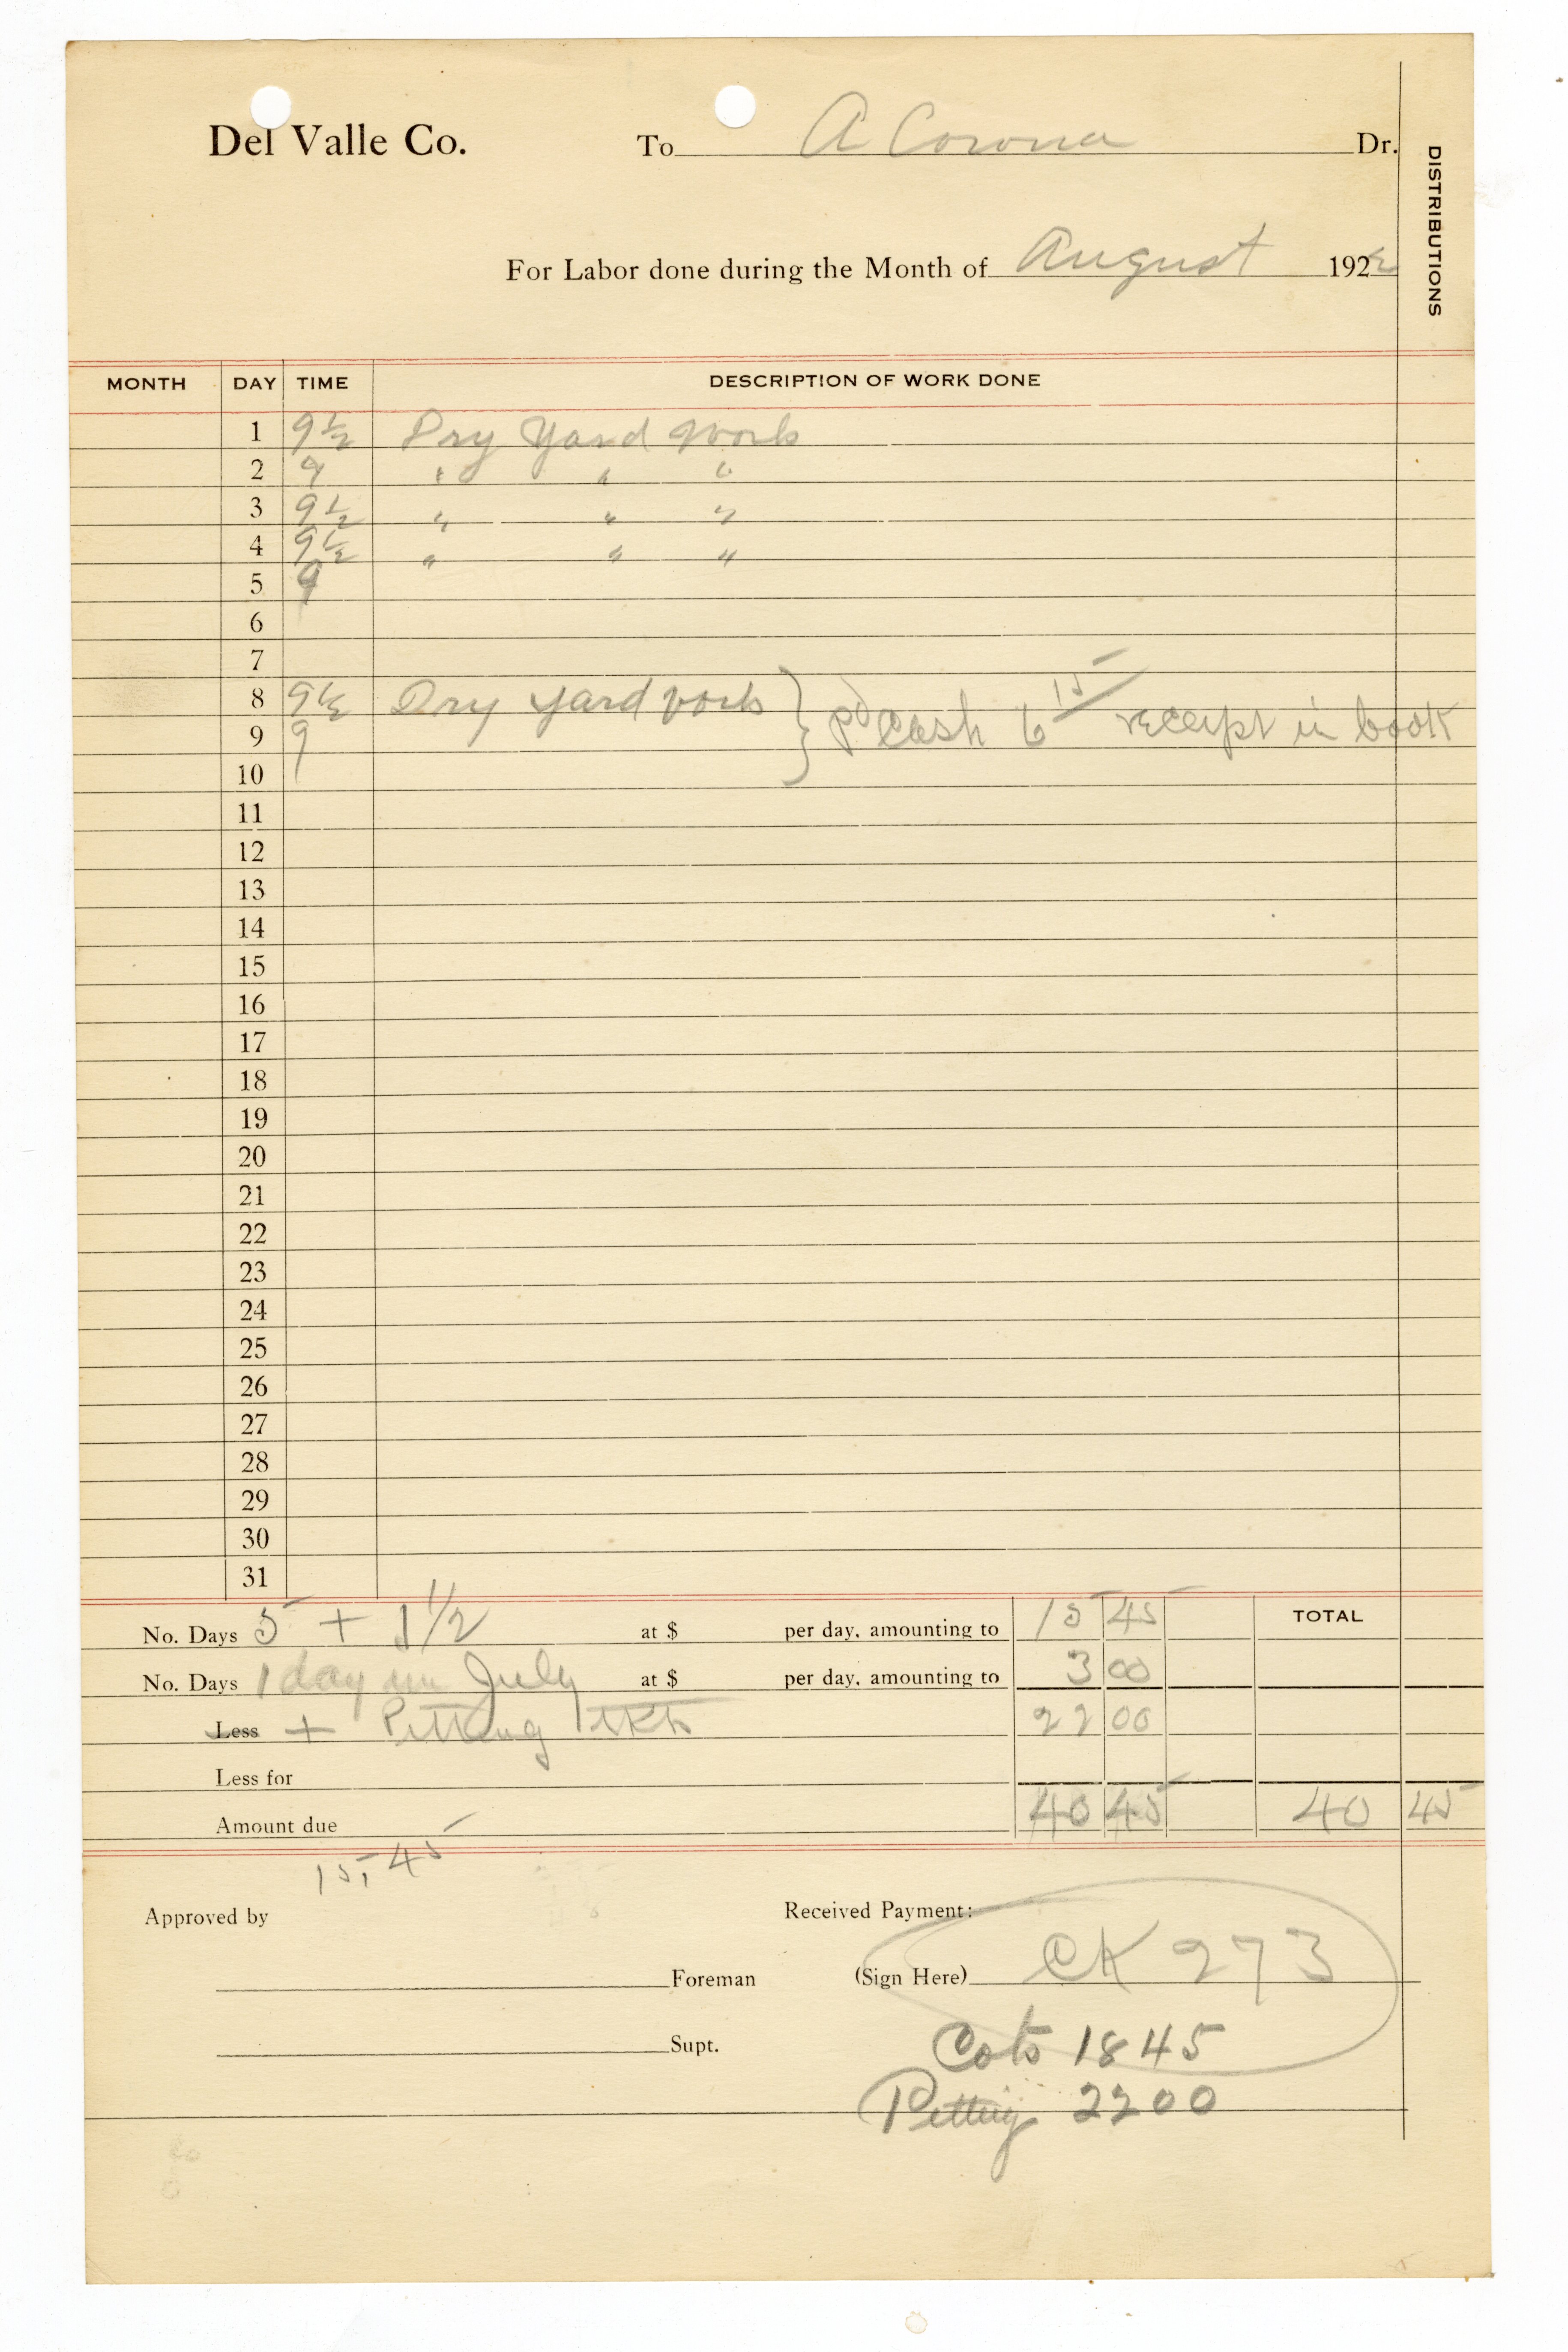 Del Valle Co. To A Corona Dr.
DISTRIBUTIONS
For Labor done during the Month of August 1922
MONTH DAY TIME DESCRIPTION OF WORK DONE
1 9 1/2 Dry Yard Work
2 9 " " "
3 9 1/2 " " "
4 9 1/2 " " "
5 9
6
7
8 9 1/2 Dry yard work } pd cash 6 15/ receipt in book
9 9
10
11
12
13
14
15
16
17
18
19
20
21
22
23
24
25
26
27
28
29
30
31
No. Days 5 + 1 1/2 at $ per day, amounting to 15 45 TOTAL
No. Days 1 day in July at $ per day, amounting to 3 00
Less + Pitting 22 00
Less for
Amount due 40 45 40 45
15,45
Approved by Received Payment:
Foreman (Sign Here) CK 273
Supt. Cots 1845
Pitting 2200